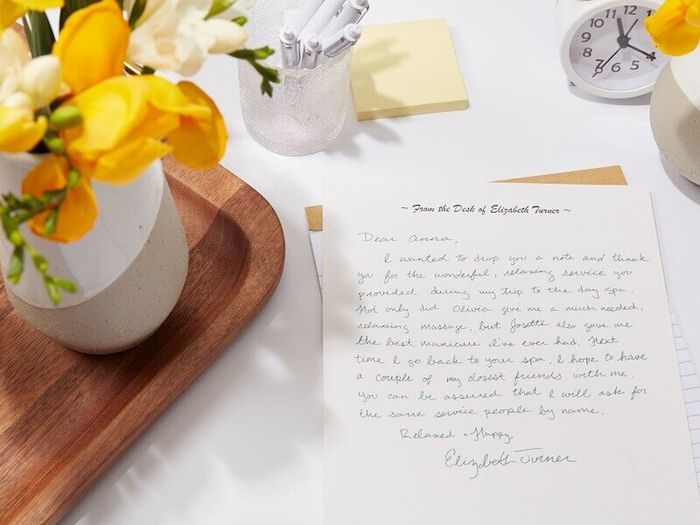 11 12 1
10 2
9 3
8 4
7 6 5
~ From the Desk of Elizabeth Turner ~
Dear Anna,
I wanted to drop you a note and thank
you for the wonderful, relaxing service you
provided during my trip to the day spa.
Not only did Olivia give me a much needed,
relaxing massage, but Josette also gave me
the best manicure I've ever had. Next
time I go back to your spa, I hope to have
a couple of my closest friends with me.
You can be assured that I will ask for
the same service people by name.
Relaxed + Happy,
Elizabeth Turner